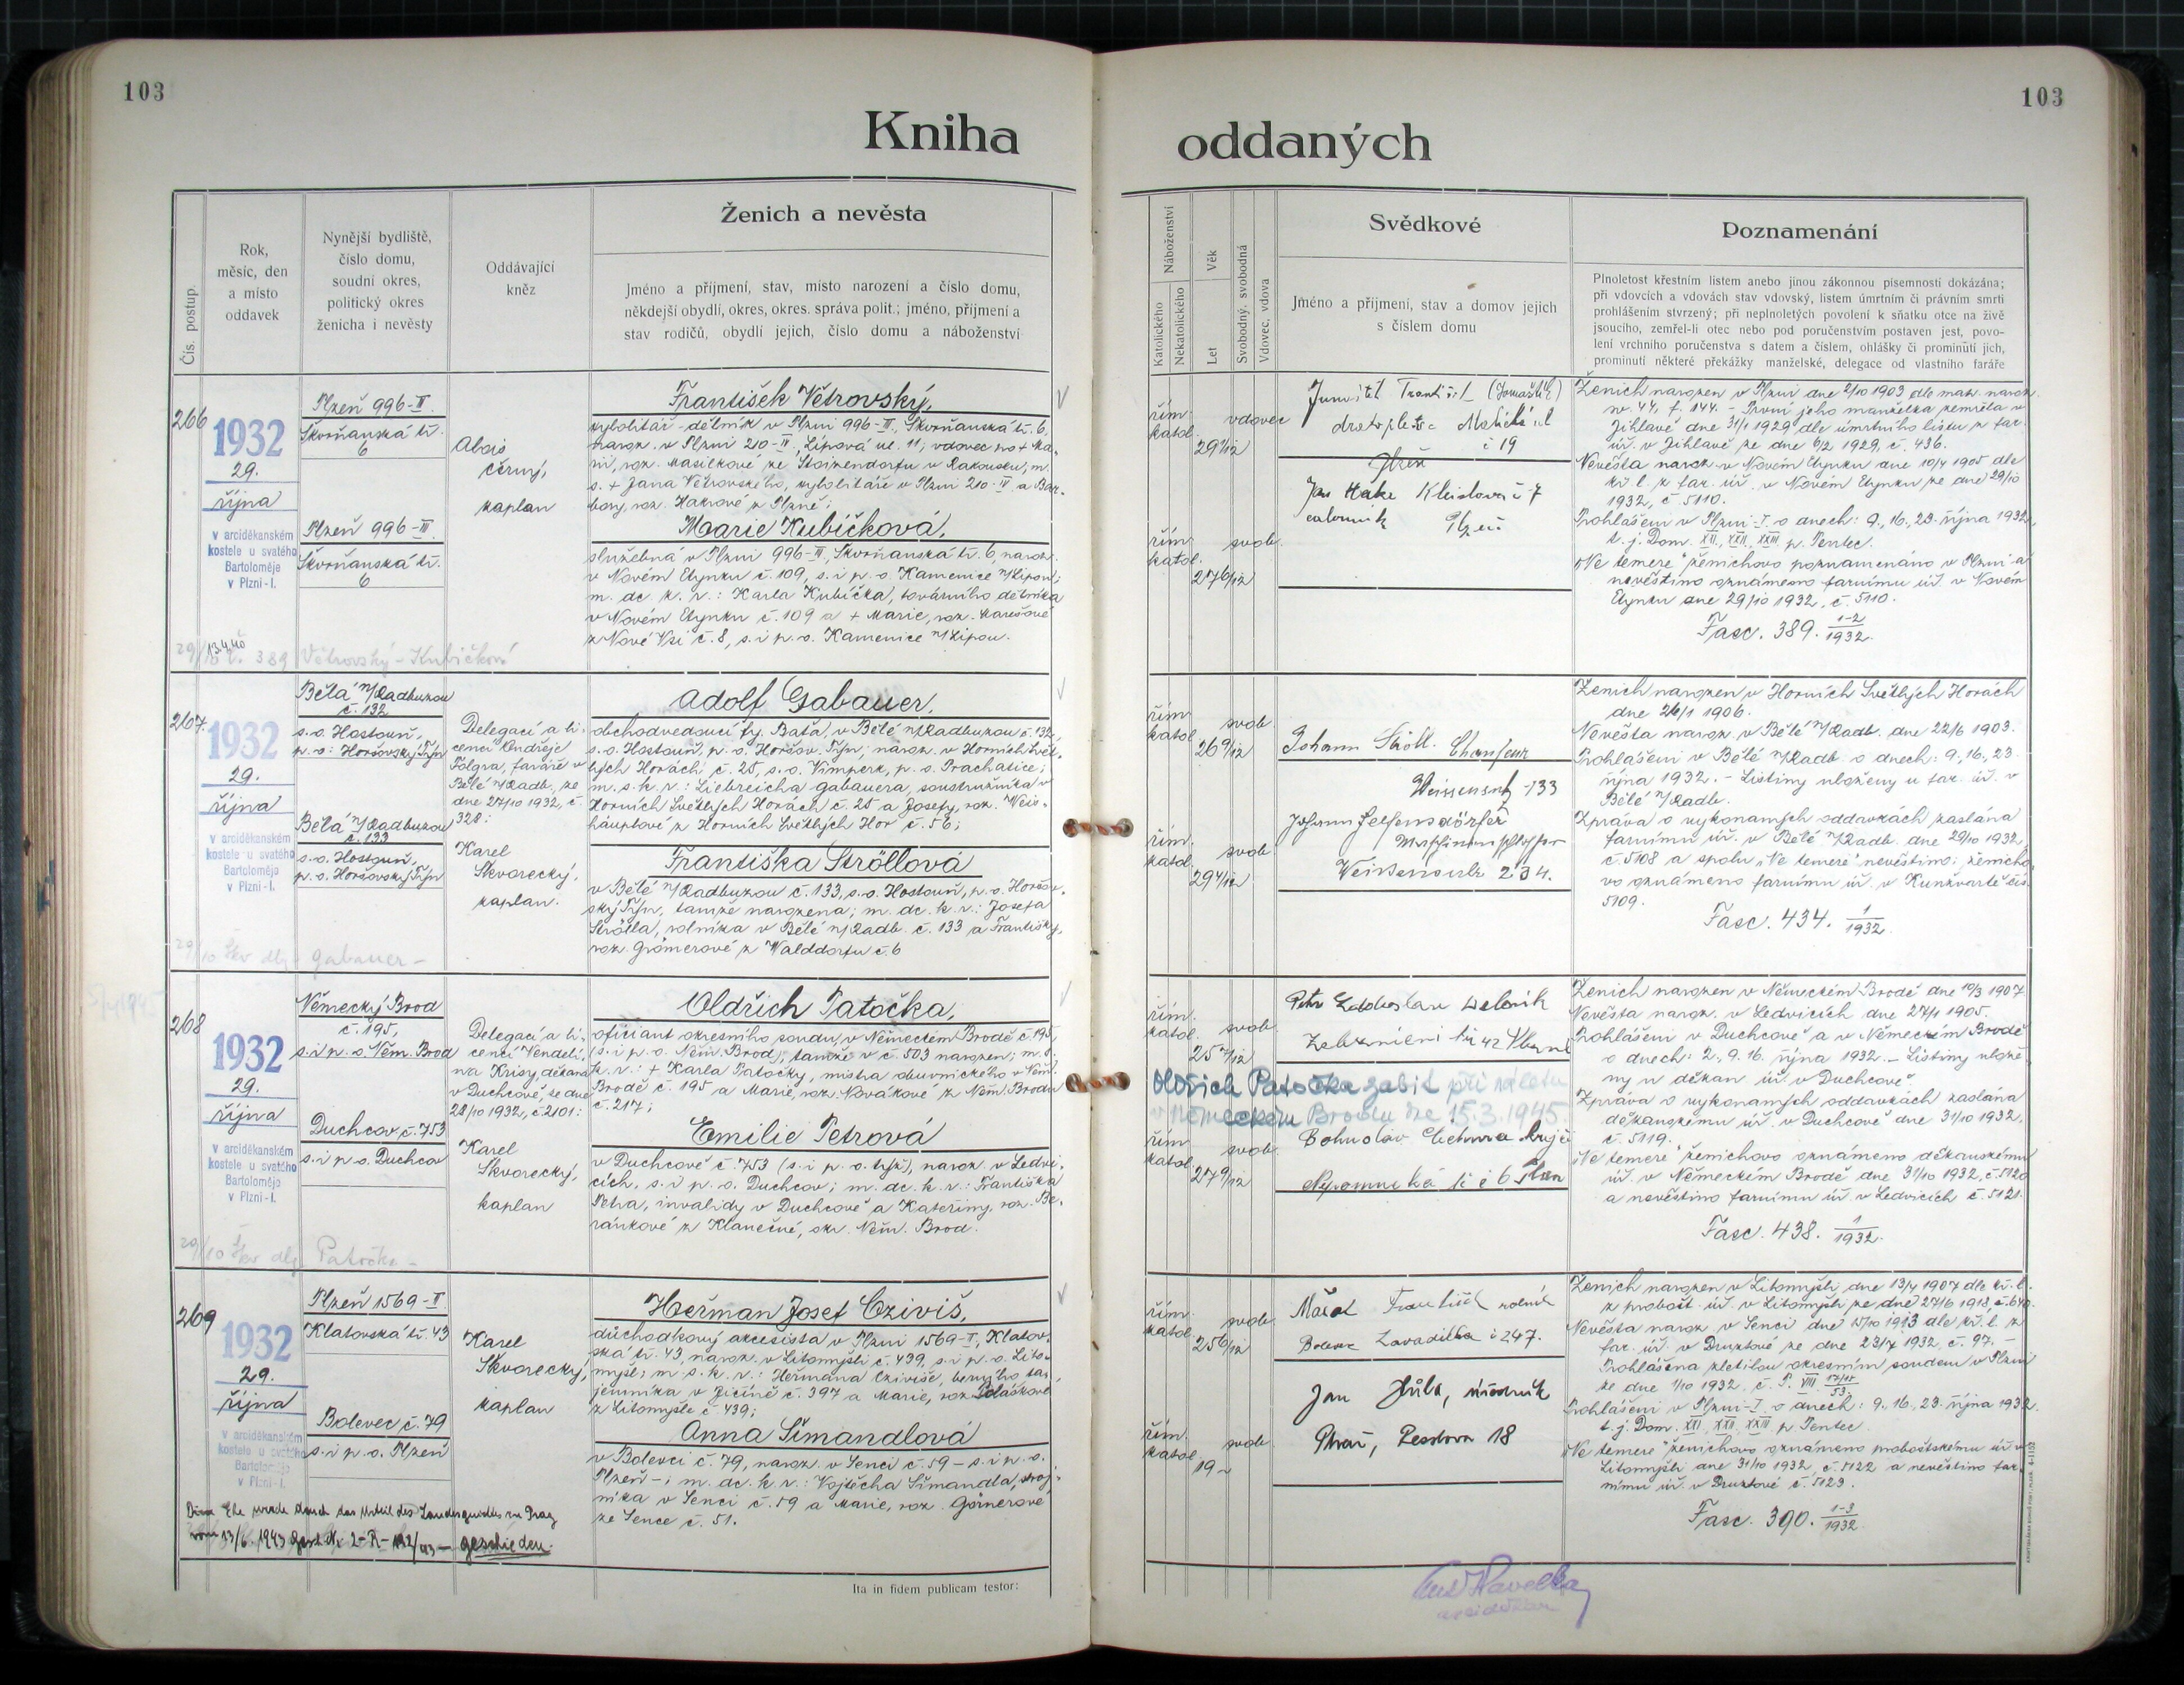 103
103
Kniha oddaných
Čís. postup.
Rok,
měsíc, den
a místo
oddavek
Nynější bydliště,
číslo domu,
soudní okres,
politický okres
ženicha i nevěsty
Oddávající
kněz
Ženich a nevěsta
Jméno a příjmení, stav, místo narození a číslo domu,
někdejší obydlí, okres, okres. správa polit.; jméno, příjmení a
stav rodičů, obydlí jejich, číslo domu a náboženství
Náboženství
Katolického
Nekatolického
Věk
Let
Svobodný, svobodná
Vdovec, vdova
Svědkové
Jméno a příjmení, stav a domov jejich
s číslem domu
Poznamenání
Plnoletost křestním listem anebo jinou zákonnou písemností dokázána;
při vdovcích a vdovách stav vdovský, listem úmrtním či právním smrti
prohlášením stvrzený; při neplnoletých povolení k sňatku otce na živě
jsoucího, zemřel-li otec nebo pod poručenstvím postaven jest, povo-
lení vrchního poručenstva s datem a číslem, ohlášky či prominutí jich,
prominutí některé překážky manželské, delegace od vlastního faráře
266
1932
29.
října
v arciděkanském
kostele u svatého
Bartoloměje
v Plzni-I.
Plzeň 996-II.
Skvrňanská tř.
6
Plzeň 996-III.
Skvrňanská tř.
6
Alois
Černý,
kaplan
František Větrovský,
kyblitář-dělník v Plzni 996-III, Skvrňanská tř. 6,
naroz. v Plzni 210-II, Lipová ul. 11; vdovec po + Ma-
rii, roz. Masilkové ze Stojzendorfu v Rakousku, m.
s. + Jana Větrovského, v Plzni 210-II a Bar-
bory, roz. v Plzni;
Marie Kubíčková,
služebná v Plzni 996-III, Skvrňanská tř. 6, naroz.
v Novém Etynku č. 109, s. i p. o. Kamenice n/Lipou;
m. dc. k. r.: Karla Kubíčka, továrního dělníka
v Novém Etynku č. 109 a + Marie, roz. Marešové
z Nové Vsi č. 8, s. i p. o. Kamenice n/Lipou.
29/10 č. 389 Větrovský-Kubíčková
řím.
katol.
29 1/12
vdovec
řím.
katol.
27 6/12
svob.
František
č 19
Plzeň
Jan Hake
Plzeň
Ženich narozen v Plzni dne 2/10 1903 dle matr. naroz.
sv. 44, f. 144. - První jeho manželka zemřela v
Jihlavě dne 31/1 1929 dle úmrtního listu z far.
úř. v Jihlavě ze dne 6/2 1929, č. 436.
Nevěsta naroz. v Novém Etynku dne 10/4 1905 dle
kř. l. z far. úř. v Novém Etynku ze dne 29/10
1932, č. 5110.
Prohlášeni v Plzni-I. o dnech: 9., 16., 23. října 1932,
t. j. Dom. XXI, XXII, XXIII p. Pentec.
„Ne temere" ženichovo poznamenáno v Plzni a
nevěstino oznámeno farnímu úř. v Novém
Etynku dne 29/10 1932, č. 5110.
Fasc. 389. 1-2/1932.
267
1932
29.
října
v arciděkanském
kostele u svatého
Bartoloměje
v Plzni-I.
Bělá n/Radbuzou
č. 132
s. o. Hostouň,
p. o: Horšovský Týn
Bělá n/Radbuzou
č. 133
s. o. Hostouň,
p. o. Horšovský Týn
Delegací a li-
cencí Ondřeje
Fölgra, faráře v
Bělé n/Radb., ze
dne 27/10 1932, č.
328:
Karel
Skvorecký,
kaplan.
Adolf Gabauer,
obchodvedoucí fy. Baťa, v Bělé n/Radbuzou č. 132,
s. o. Hostouň, p. o. Horšov. Týn; naroz. v Horních Svět-
lých Horách č. 25, s. o. Vimperk, p. o. Prachatice;
m. s. k. r.: Liebreicha Gabauera, soustružníka v
Horních Světlých Horách č. 25 a Josefy, roz. Weis-
häuptové z Horních Světlých Hor č. 56;
Františka Ströllová
v Bělé n/Radbuzou č. 133, s. o. Hostouň, p. o. Horšov-
ský Týn, tamže narozena; m. dc. k. r.: Josefa
Strölla, rolníka v Bělé n/Radb. č. 133 a Františky,
roz. Grömerové z Walddorfu č. 6
29/10 Skv dlg Gabauer-
řím.
katol.
26 9/12
svob.
řím.
katol.
29 4/12
svob.
Johann Ströll. Chauffeur
Weissensulz 133
Johann Felfensdörfer
Maschinenschlosser
Weissensulz 234.
Ženich narozen v Horních Světlých Horách
dne 26/1 1906.
Nevěsta naroz. v Bělé n/Radb. dne 22/6 1903.
Prohlášeni v Bělé n/Radb. o dnech: 9., 16., 23.
října 1932. - Listiny uloženy u far. úř. v
Bělé n/Radb.
Zpráva o vykonaných oddavkách zaslána
farnímu úř. v Bělé n/Radb. dne 29/10 1932,
č. 5108 a spolu „Ne temere" nevěstino; ženicho-
vo oznámeno farnímu úř. v Kunžvartě čís.
5109.
Fasc. 434. 1/1932.
268
1932
29.
října
v arciděkanském
kostele u svatého
Bartoloměje
v Plzni-I.
Německý Brod
č. 195,
s. i p. o. Něm. Brod
Duchcov, č. 753
s. i p. o. Duchcov
Delegací a li-
cencí Vendelí-
na Krisy, děkana
v Duchcově, ze dne
28/10 1932, č. 2101:
Karel
Skvorecký,
kaplan
Oldřich Patočka,
oficiant okresního soudu v Německém Brodě č. 195
(s. i p. o. Něm. Brod), tamže v č. 503 narozen; m. s.
k. r.: + Karla Patočky, mistra obuvnického v Něm.
Brodě č. 195 a Marie, roz. Novákové z Něm. Brodu
č. 217;
Emilie Petrová
v Duchcově č. 753 (s. i p. o. týž), naroz. v Ledvi-
cích, s. i p. o. Duchcov; m. dc. k. r.: Františka
Petra, invalidy v Duchcově a Kateřiny, roz. Be-
ránkové z Klanečné, okr. Něm. Brod.
29/10 Skv dlg Patočka-
řím.
katol.
25 7/12
svob.
Oldřich Patočka zabit při náletu
v Německém Brodu dne 15.3.1945.
řím.
katol.
27 9/12
svob.
Petr
Bohuslav
Nepomucká tř. č 6 Plzen
Ženich narozen v Německém Brodě dne 10/3 1907
Nevěsta naroz. v Ledvicích dne 27/1 1905.
Prohlášeni v Duchcově a v Německém Brodě
o dnech: 2., 9. 16. října 1932. - Listiny ulože-
ny u děkan. úř. v Duchcově.
Zpráva o vykonaných oddavkách zaslána
děkanskému úř. v Duchcově dne 31/10 1932,
č. 5119.
„Ne temere" ženichovo oznámeno děkanskému
úř. v Německém Brodě dne 31/10 1932, č. 5120
a nevěstino farnímu úř. v Ledvicích č. 5121.
Fasc. 438. 1/1932.
269
1932
29.
října
v arciděkanském
kostele u svatého
Bartoloměje
v Plzni-I.
Plzeň 1569-II.
Klatovská tř. 43
Bolevec č. 79
s. i p. o. Plzeň
Karel
Skvorecký,
kaplan
Heřman Josef Cziviš,
důchodkový akcesista v Plzni 1569-II, Klatov-
ská tř. 43, naroz. v Litomyšli č. 439, s. i p. o. Lito-
myšl; m. s. k. r.: Heřmana Cziviše, berního taj-
jemníka v Jičíně č. 397 a Marie, roz. Poláškové
z Litomyšle č. 439;
Anna Šimandlová
v Bolevci č. 79, naroz. v Senci č. 59 - s. i p. o.
Plzeň -; m. dc. k. r.: Vojtěcha Šimandla, stroj-
níka v Senci č. 59 a Marie, roz. Görnerové
ze Sence č. 51.
Diese Ehe wurde durch das Urteil des Landesgerichts in Prag
vom 13/6. 1943 2-R-192/43 - geschieden.
řím.
katol.
25 6/12
svob.
řím.
katol.
19 -
svob.
František rolník
Bolevec Zavadilka č 247.
Jan Hůla, úředník
Plzeň, 18
Ženich narozen v Litomyšli dne 13/4 1907 dle kř. l.
z probošt. úř. v Litomyšli ze dne 27/6 1918, č. 640.
Nevěsta naroz. v Senci dne 15/10 1913 dle kř. l. z
far. úř. v Druztové ze dne 23/7 1932, č. 97. -
Prohlášena zletilou okresním soudem v Plzni
ze dne 1/10 1932, č. P. VIII
Prohlášeni v Plzni-I. o dnech: 9., 16., 23. října 1932.
t. j. Dom. XXI, XXII, XXIII p. Pentec.
„Ne temere" ženichovo oznámeno proboštskému úř. v
Litomyšli dne 31/10 1932, č. 5122 a nevěstino far-
nímu úř. v Druztové č. 5123.
Fasc. 390. 1-3/1932.
Ita in fidem publicam testor:
Havelka
arciděkan